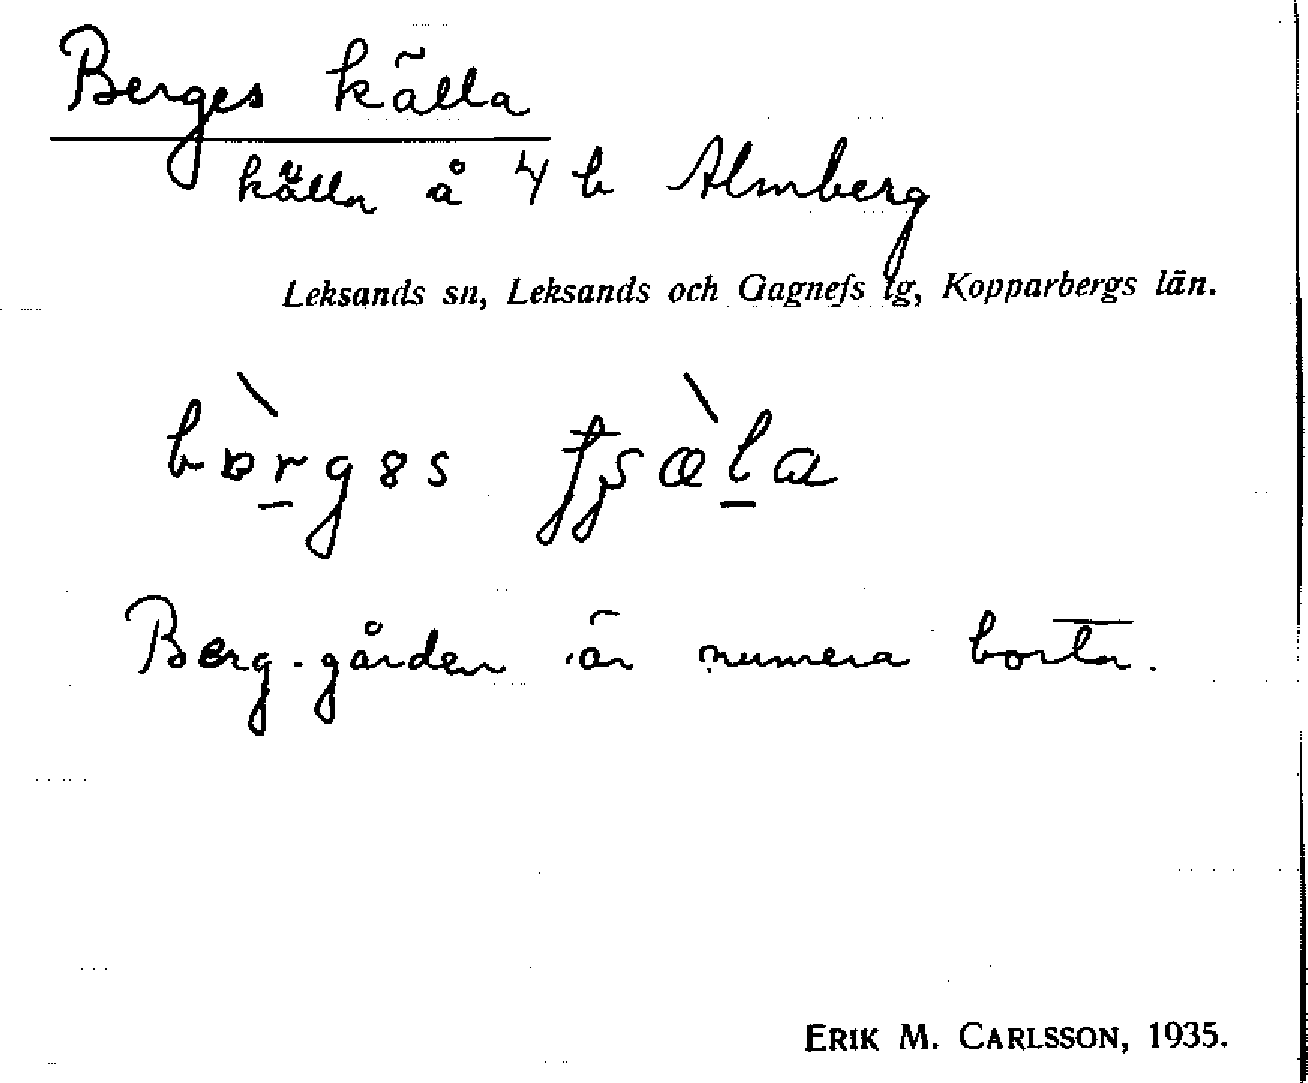 Berges källa
källa å 4 b Almberg
Leksands sn, Leksands och Gagnefs tg, Kopparbergs län.
Berg-gården är numera borta.
ERIK M. CARLSSON, 1935.